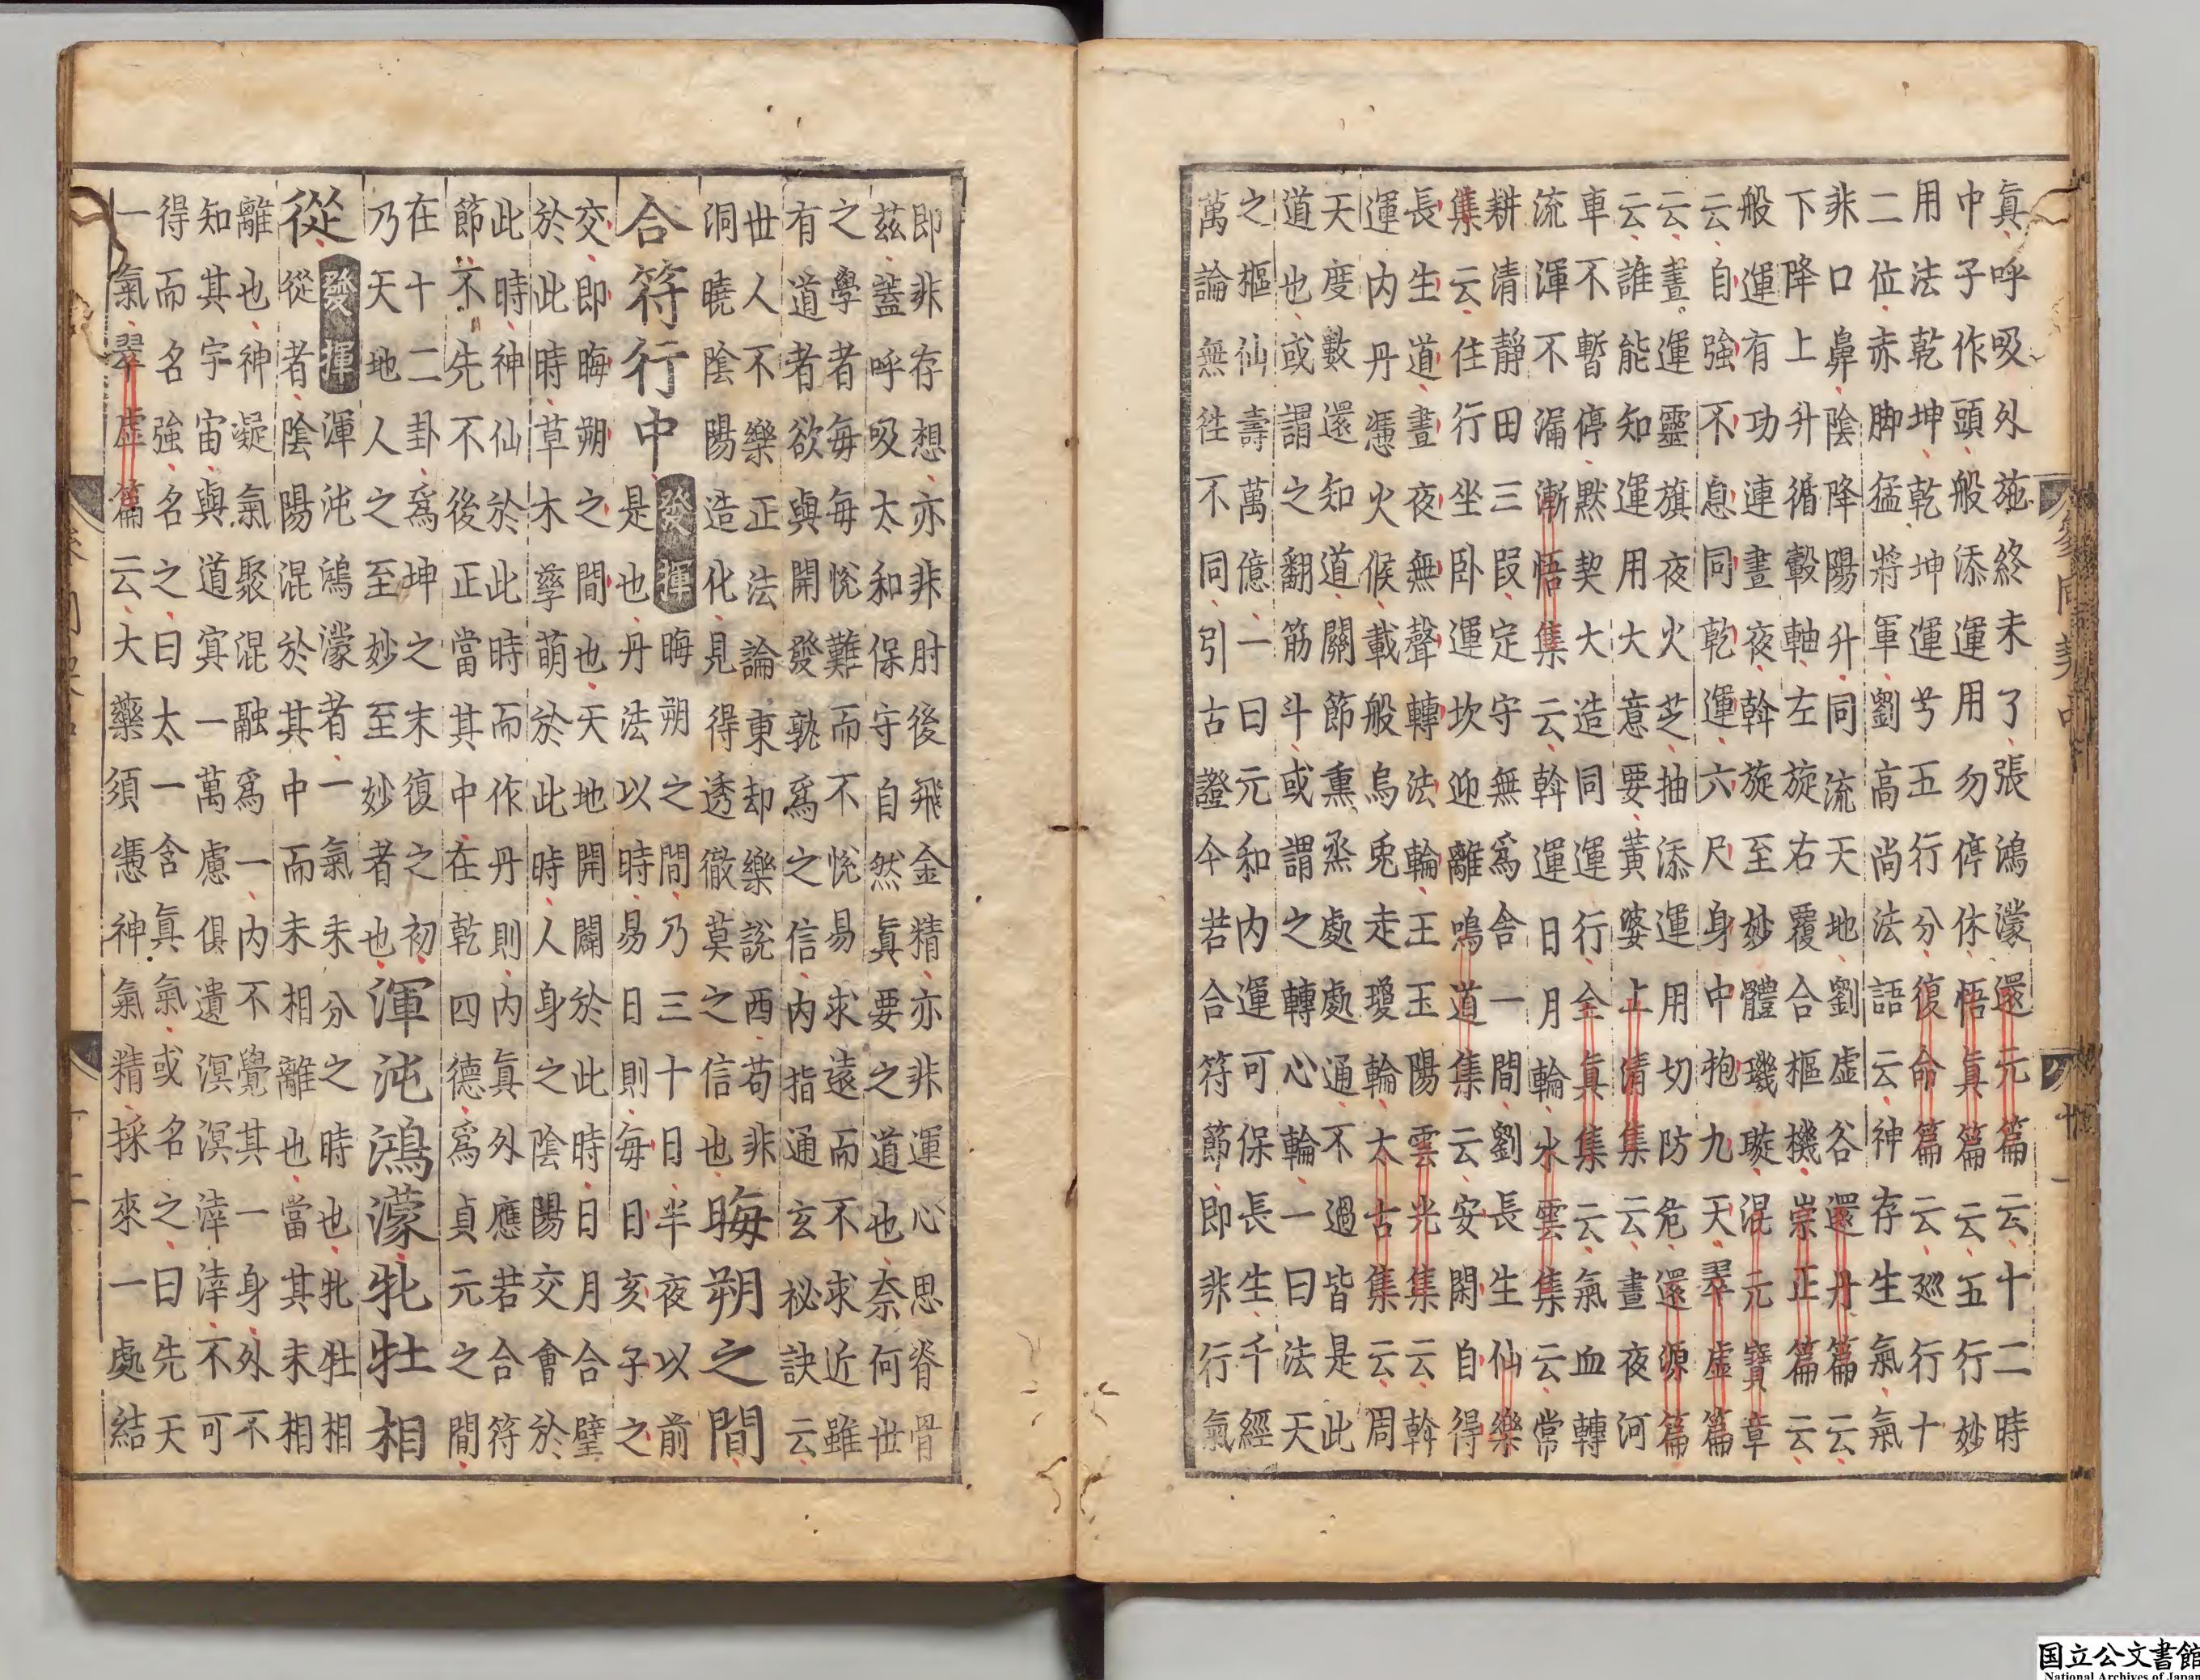 眞呼吸外施終未了張鴻濛還元篇云十二時
中子作頭般添運用勿停休悟眞篇云五行妙
用法乾坤乾坤運兮五行分復命篇云廵行十
二位赤脚猛將軍劉高尚法語云神存生氣氣
非口鼻陰降陽升同流天地劉虚谷還丹篇云
下降上升循轂軸左旋右覆合樞機崇正篇云
般運有功連晝夜斡旋至妙體璣璇混元寶章
云自強不息同乾運六尺身中抱九天翠虚篇
云晝運靈旗夜火芝抽添運用切防危還源篇
云誰能知運用大意要黃婆上清集云晝夜河
車不暫停默契大造同運行全眞集云氣血轉
流渾不漏漸悟集云斡運日月輪水雲集云常
耕清靜田三叚定守無爲舍一間劉長生仙樂
集云住行坐卧運坎迎離嗚道集云安閑自得
長生道晝夜無聲轉法輪王玉陽雲光集云斡
運内丹慿火候載般烏兎走瓊輪太古集云周
天度數還知道關節熏烝處處通不過皆是此
道也或謂之翻筋斗或謂之轉心輪一曰法天
之樞仙壽萬億一曰元和内運可保長生千經
萬論無徃不同引古證今若合符節即非行氣
即非存想亦非肘後飛金精亦非運心思脊骨
茲蓋呼吸太和保守自然眞要之道也奈何世
之學者每毎恱難而不恱易求遠而不求近雖
有道者欲與開發孰爲之信内指通玄祕訣云
世人不樂正法論東却樂說西苟非
洞曉陰陽造化見得透徹莫之信也晦朔之間
合符行中
發揮
晦朔之間乃三十日半夜以前
是也丹法以時易日則每日亥子之
交即晦朔之間也天地開闢於此時日月合璧
於此時草木孳萌於此時人身之陰陽交會於
此時神仙於此時而作丹則内眞外應若合符
節不先不後正當其中在乾四德爲貞元之間
在十二卦爲坤之末復之初
乃天地人之至妙至妙者也渾沌鴻濛牝牡相
從
發揮
渾沌鴻濛者一氣未分之時也牝牡相
從者陰陽混於其中而未相離也當其未相
離也神凝氣聚混融爲一内不覺其一身外不
知其宇宙與道冥一萬慮俱遺溟溟涬涬不可
得而名強名之曰太一含眞氣或名之曰先天
一氣翠虚篇云大藥須慿神氣精採來一處結
国立公文書館
National Archives of Japan